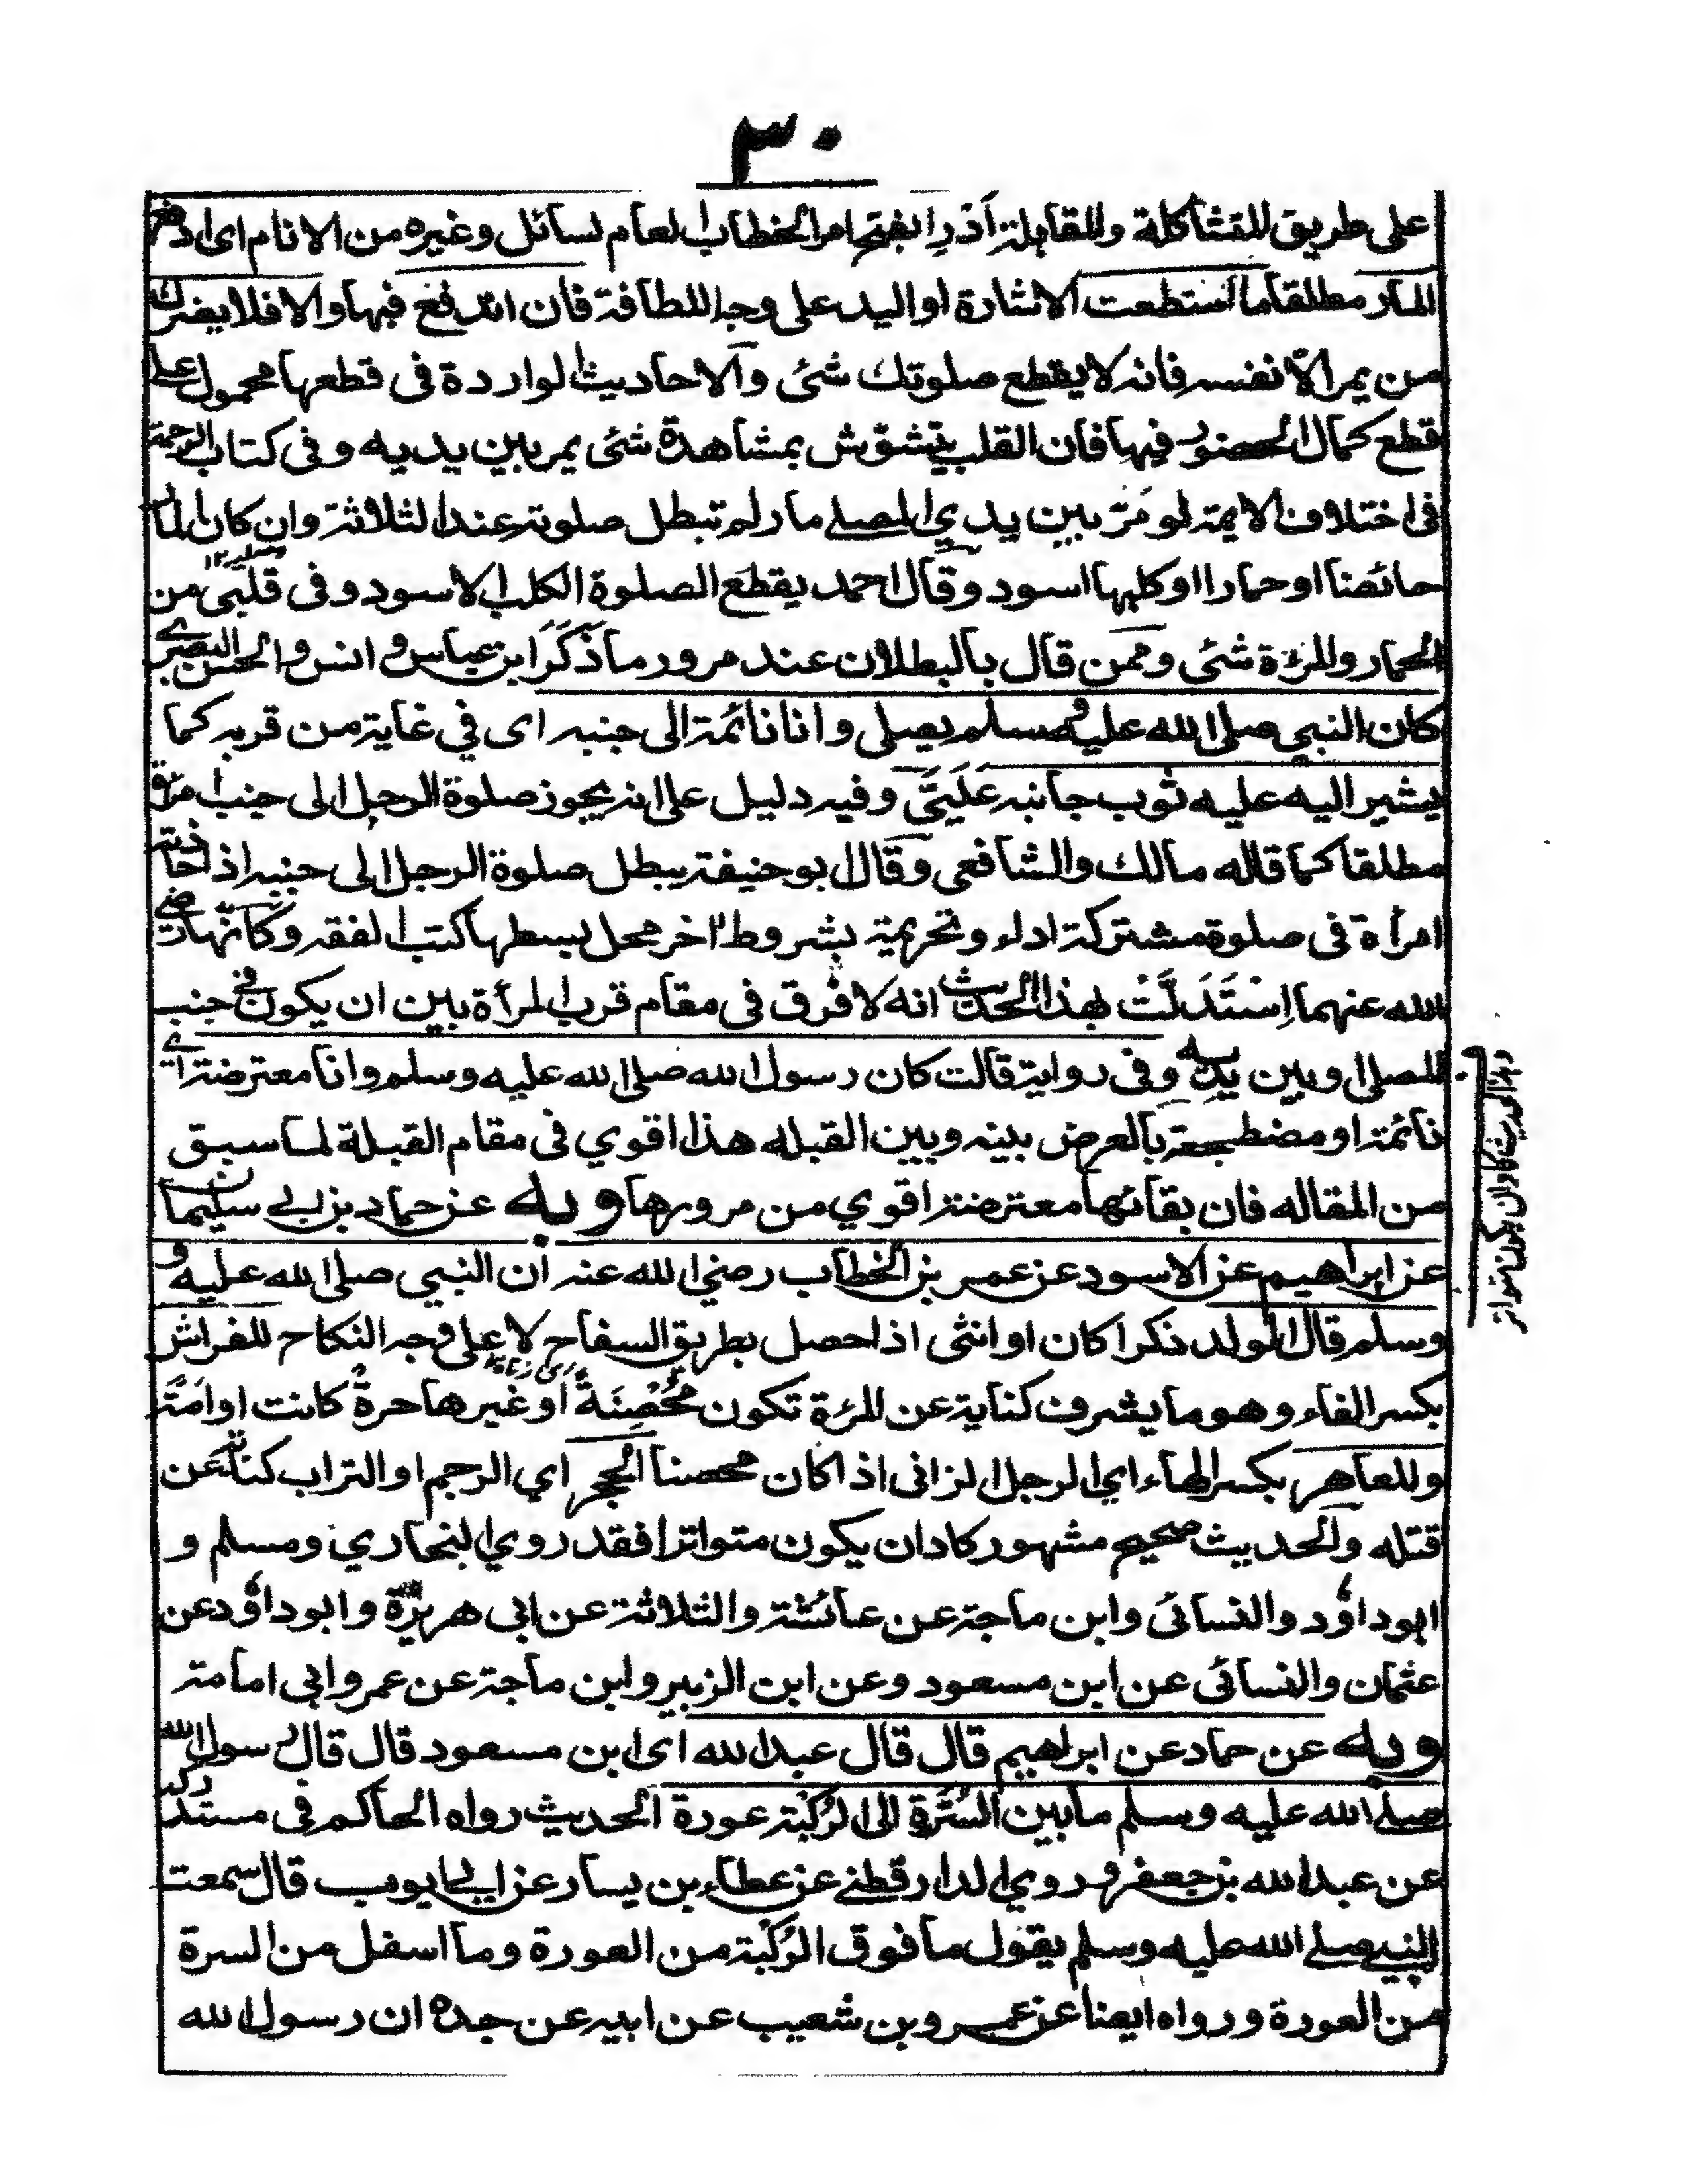 ٣٠
على طريق المشاكلة والمقابلة اَدْرِا بفتح امر الخطاب العام لسائل وغيره من الانام اى ادفع
المار مطلقا ما استطعت الاشارة او اليد على وجه اللطافة فان اندفع فبها والا فلا يضرك
من يمر الا نفسه فانه لا يقطع صلوتك شئى والاحاديث الواردة فى قطعها محمول على
قطع كمال الحضور فيها فان القلب يتشوّش بمشاهدة شئى يمر بين يديه وفى كتاب الرحمة
فى اختلاف الايمة لو مَرّ بين يدي المصلے مار لم تبطل صلوته عند الثلاثة وان كان المار
حائضا او حمارا او كلبها اسود وقال احمد يقطع الصلوة الكلب الاسود وفى قلبى من
الحمار والمرءة شئى وممن قال بالبطلان عند مرور ما ذُكَرَ ابن عباس و انس و الحسن البصرے
كان النبي صلى الله عليه و مسلم يصلى وانا نائمة الى جنبه اى في غاية من قربه كما
يشير اليه عليه ثوب جانبه عَلَيَّ وفيه دليل على انه يجوز صلوة الرجل الى جنب امرأة
مطلقا كما قاله مالك والشافعى وقال ابو حنيفة يبطل صلوة الرجل الى جنبه اذا حاذته
امرأة فى صلوة مشتركة اداء وتحريمة بشروط اخر محل بسطها كتب الفقه وكانّها رضى
الله عنهما اِسْتَدَلَّتْ بهذا الحديث انه لا فرق فى مقام قرب المرأة بين ان يكون فے جنب
المصلى او بين يديه وفى رواية قالت كان رسول الله صلى الله عليه وسلم وانا معترضة اے
نائمة او مضطجعة بالعرض بينه وبين القبله هذا اقوي فى مقام القبلة لما سبق
من المقاله فان بقائها معترضة اقوي من مرورها وبه عن حماد بن ابے سليمان
عن ابراهيم عن الاسود عن عمر بن الخطاب رضي الله عنه ان النبي صلى الله عليه و
وسلم قال الولد ذكرا كان او انثى اذا حصل بطريق السفاح لا على وجه النكاح للفراش
بكسر الفاء وهو ما يشرف كناية عن المرءة تكون مُحْصِنَةً او غيرها حرةً كانت او امَةً
وللعاهر بكسر الهاء اي الرجل الزانى اذا كان محصنا الحجر اي الرجم او التراب كناية عن
قتله والحديث صحيح مشهور كاد ان يكون متواترا فقد روي البخاري ومسلم و
ابو داؤد والنسائى وابن ماجة عن عائشة والثلاثة عن ابى هريرة وابو داؤد عن
عثمان والنسائى عن ابن مسعود وعن ابن الزبير وابن ماجة عن عمر وابى امامة
وبه عن حماد عن ابراهيم قال قال عبد الله اى ابن مسعود قال قال رسول الله
صلے الله عليه وسلم ما بين السُّرّة الى الرُكْبة عورة الحديث رواه الحاكم فى مستدركه
عن عبد الله بن جعفر و روي الدارقطنے عن عطاء بن يسار عن ابے ايوب قال سمعت
النبے صلے الله عليه وسلم يقول ما فوق الرُكْبة من العورة وما اسفل من السرة
من العورة ورواه ايضا عن عمرو بن شعيب عن ابيه عن جده ان رسول الله
هذا الحديث كاد ان يكون متواتر